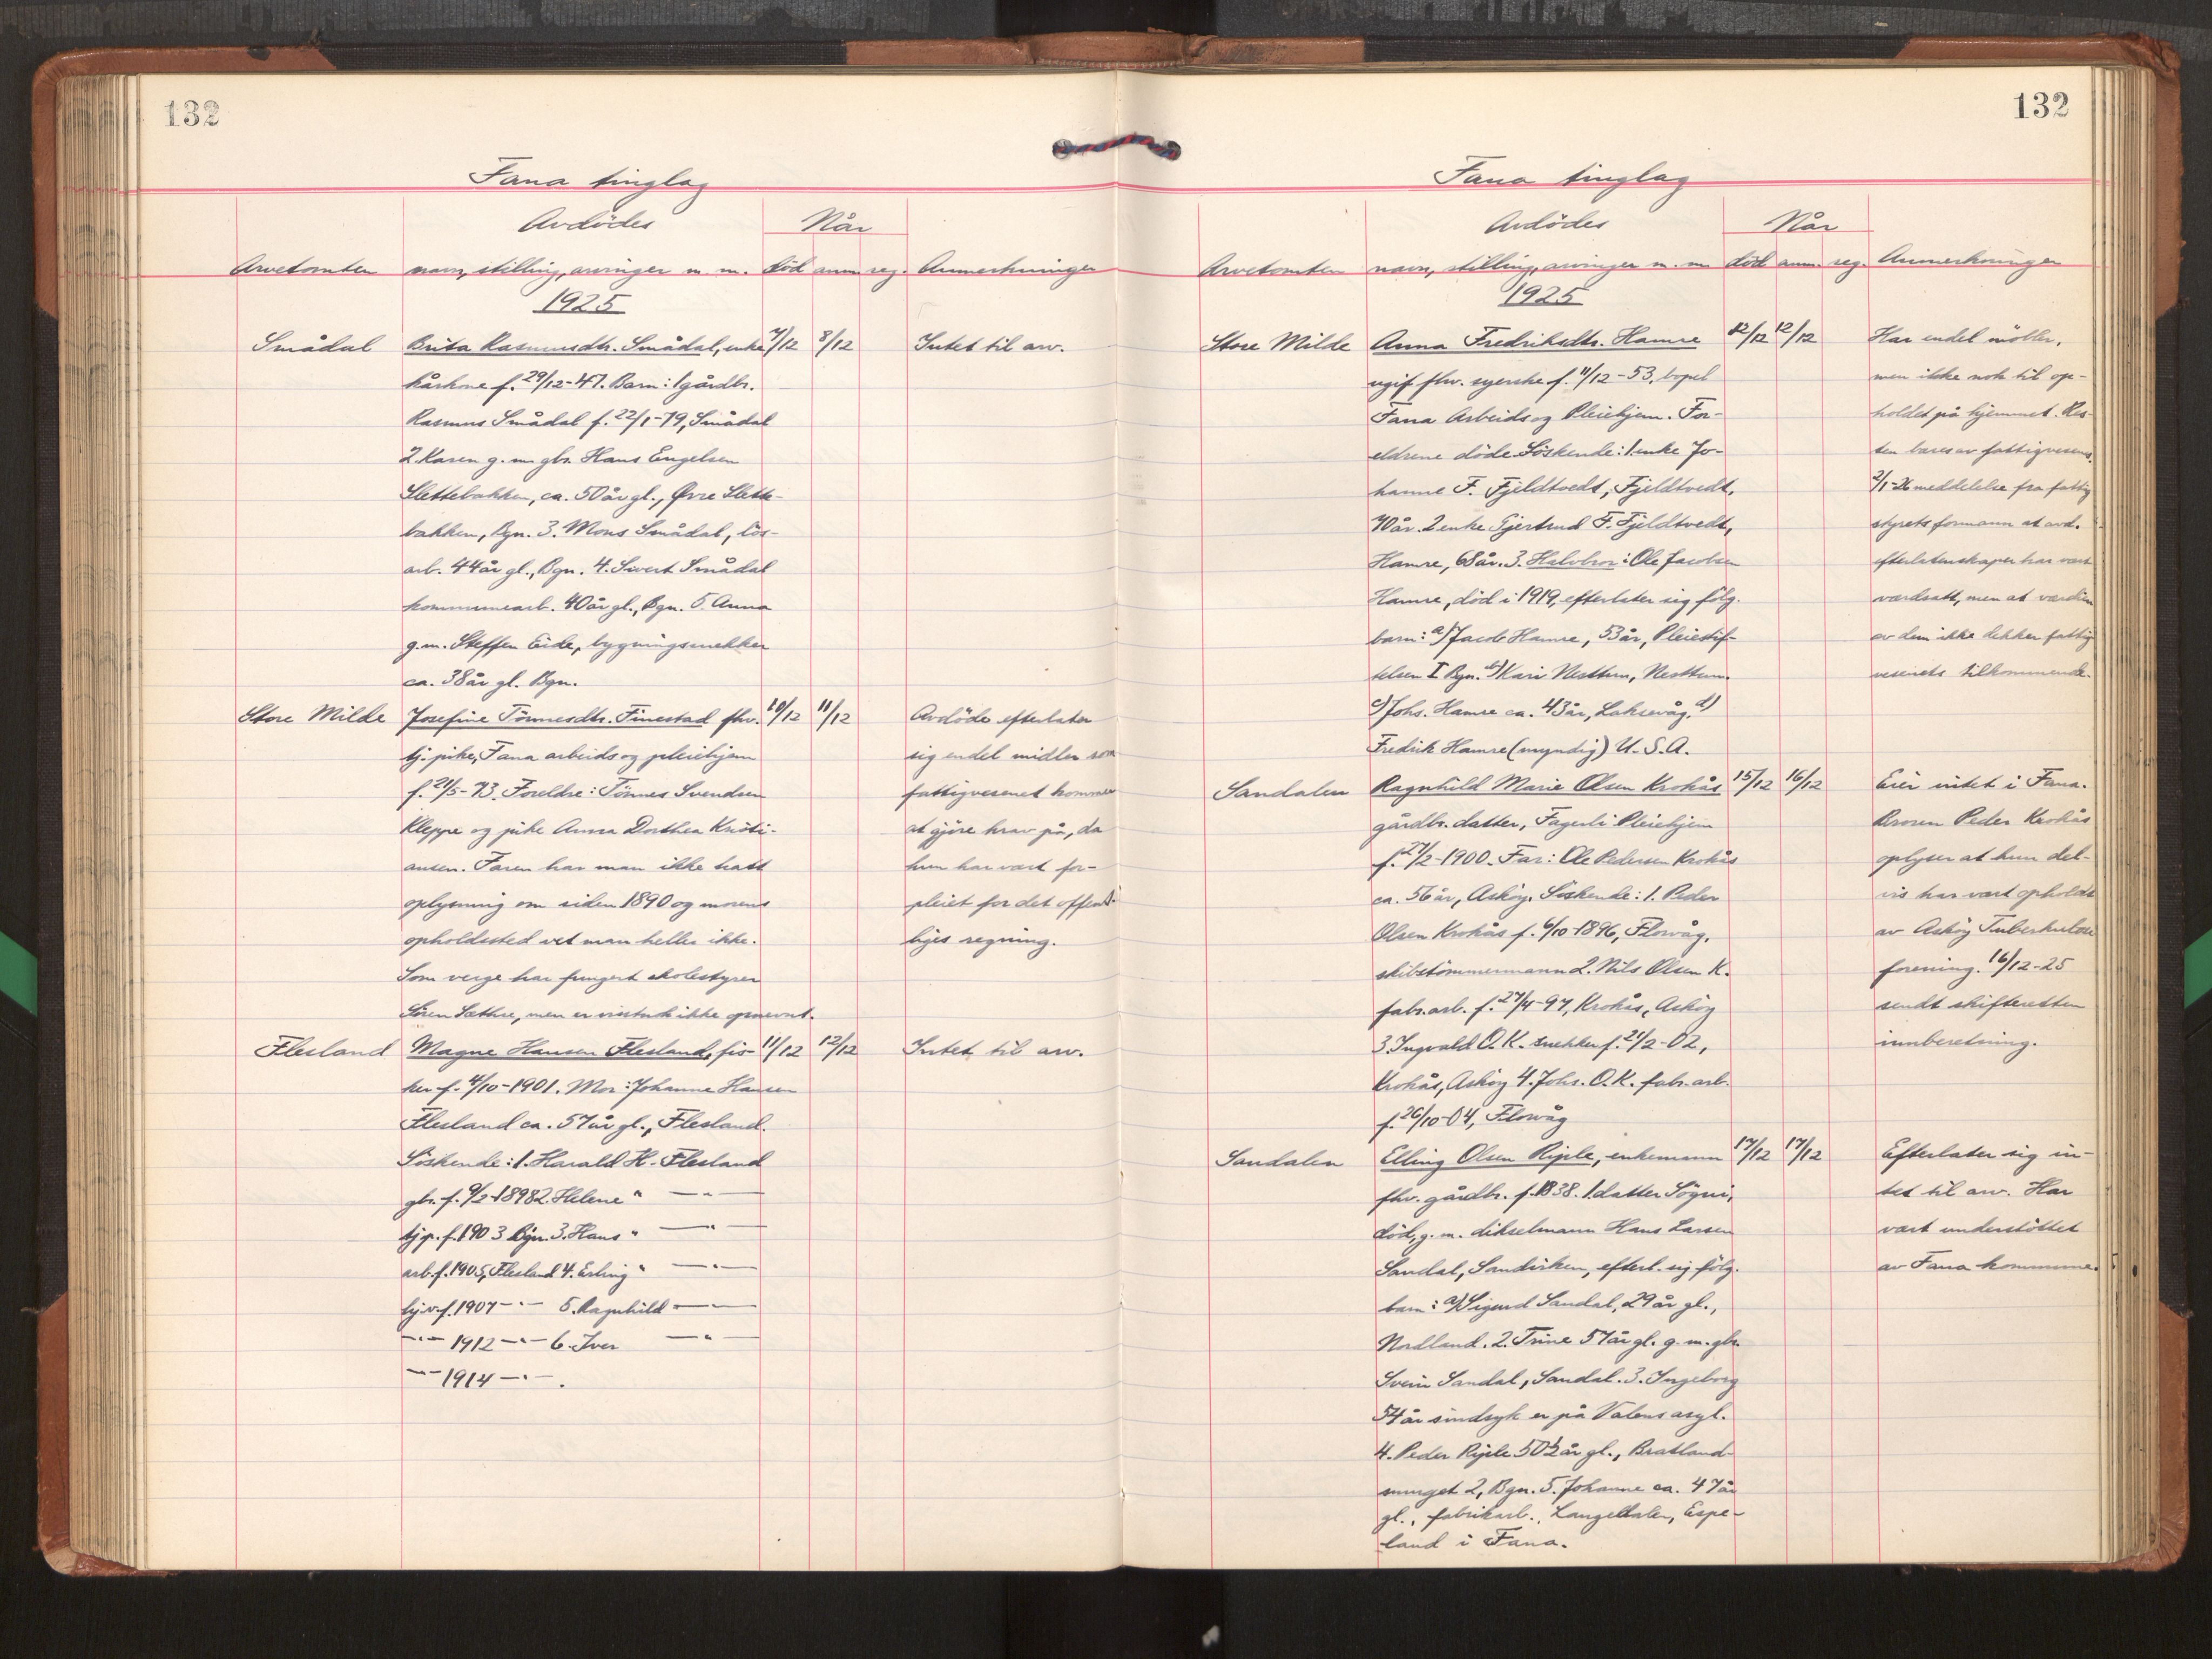 132
Fana tinglag
Avdödes
Når
Arvetomten navn, stilling, arvinger m. m. död anm. reg. Anmerkninger
1925
Smådal Brita Rasmusdtr. Smådal, enke 7/12 8/12 Intet til arv.
kårkone f. 29/12-47. Barn: 1 gårdbr.
Rasmus Smådal f. 22/1-79, Smådal
2. Karen g. m. gbr. Hans Engelsen
Slettebakken, ca. 50 år gl., Øvre Slette-
bakken, Bgn. 3. Mons Smådal, lös-
arb. 44 år gl., Bgn. 4. Sivert Smådal
kommunearb. 40 år gl., Bgn. 5. Anna
g.m. Steffen Eide, bygningssnekker
ca. 38 år gl. Bgn.
Store Milde Josefine Tönnesdtr. Finestad fhv. 10/12 11/12 Avdöde efterlater
tj. pike, Fana arbeids og pleiehjem sig endel midler som
f. 21/5-73. Foreldre: Tönnes Svendsen fattigvesenet kommer
Kleppe og pike Anna Dorthea Kristi- at gjöre krav på, da
ansen. Faren har man ikke hatt hun har vært for-
oplysning om siden 1890 og morens pleiet for det offent-
opholdssted vet man heller ikke. liges regning.
Som verge har fungert skolestyrer
Sören Sæthre, men er visstnok ikke opnevnt.
Flesland Magne Hansen Flesland, fis- 11/12 12/12 Intet til arv.
ker f. 4/10-1901. Mor: Johanne Hansen
Flesland ca. 57 år gl., Flesland.
Söskende: 1. Harald H. Flesland
gbr. f. 9/2-1898 2. Helene " — " —
tj.p. f. 1903 Bgn. 3. Hans " — " —
arb. f. 1905, Flesland 4. Erling " — " —
hj.v. f. 1907 — " — 5. Ragnhild — " —
— " — 1912 — " — 6. Iver — " —
— " — 1914 — " — .
132
Fana tinglag
Avdödes
Når
Arvetomten navn, stilling, arvinger m. m. död anm. reg. Anmerkninger
1925
Store Milde Anna Fredriksdtr. Hamre 12/12 12/12 Har endel möbler,
ugif. fhv. syerske f. 11/12-53, bopel men ikke nok til op-
Fana Arbeids og Pleiehjem. For- holdet på hjemmet. Res-
eldrene döde. Söskende: 1. enke Jo- ten bæres av fattigvesenet.
hanne F. Fjeldtvedt, Fjeldtvedt, 2/1-26 meddelelse fra fattig
70 år. 2 enke Gjertrud F. Fjeldtvedt, styrets formann at avd.
Hamre, 68 år. 3. Halvbror: Ole Jacobsen efterlatenskaper har vært
Hamre, död i 1919, efterlater sig fölg. verdsatt, men at verdien
barn: a) Jacob Hamre, 53 år, Pleiestif- av dem ikke dekker fattig
telsen I Bgn. b) Kari Nesttun, Nesttun. vesenets tilkommende.
c) Johs. Hamre ca. 43 år, Laksevåg. d)
Fredrik Hamre (myndig) U.S.A.
Sandalen Ragnhild Marie Olsen Krokås 15/12 16/12 Eier intet i Fana.
gårdbr. datter, Fagerli Pleiehjem Broren Peder Krokås
f. 27/2-1900. Far: Ole Pedersen Krokås oplyser at hun del-
ca. 56 år, Asköy. Söskende: 1. Peder vis har vært opholdt
Olsen Krokås f. 6/10-1896, Florvåg, av Asköy Tuberkulose
skibstömmermann 2. Nils Olsen K. forening. 16/12-25
fabr.arb. f. 27/4-97, Krokås, Asköy sendt skifteretten
3. Ingvald O. K. snekker f. 21/2-02, innberetning.
Krokås, Asköy 4. Johs. O. K. fabr. arb.
f. 26/10-04, Florvåg
Sandalen Elling Olsen Riple, enkemann 17/12 17/12 Efterlater sig in-
fhv. gårdbr. f. 1838. 1. datter Sögni, tet til arv. Har
död, g. m. dikselmann Hans Larsen vært understöttet
Sandal, Sandviken, efterl. sig fölg. av Fana kommune.
barn: a) Sigurd Sandal, 29 år gl.,
Nordland. 2. Trine 57 år gl. g. m. gbr.
Svein Sandal, Sandal. 3. Ingeborg
54 år sindsyk er på Valens asyl.
4. Peder Riple 50 1/2 år gl., Bratland-
smuget 2, Bgn. 5. Johanne ca. 47 år
gl., fabrikarb., Langedalen, Espe-
land i Fana.